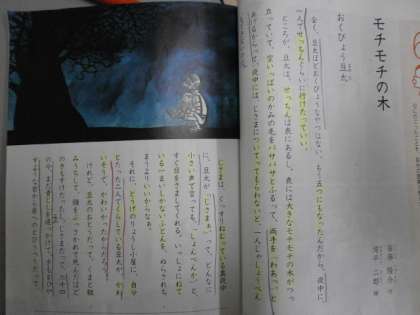 モチモチの木
斎藤 隆介 作
滝平 二郎 絵
おくびょう豆太
全く、豆太ほどおくびょうなやつはない。もう五つにもなったんだから、夜中に、
一人でせっちんぐらいに行けたっていい。
ところが、豆太は、せっちんは表にあるし、表には大きなモチモチの木がつっ
立っていて、空いっぱいのかみの毛をバサバサとふるって、両手を「わあっ」と
あげるからって、夜中には、じさまについてってもらわないと、一人じゃしょうべん
もできないのだ。
じさまは、ぐっすりねむっている真夜中
に、豆太が「じさまぁ。」って、どんなに
小さい声で言っても、「しょんべんか。」と、
すぐ目をさましてくれる。いっしょにねて
いる一まいしかないふとんを、ぬらされち
まうよりいいからなぁ。
それに、とうげのりょうし小屋に、自分
とたった二人でくらしている豆太が、かわ
いそうで、かわいかったからだろう。
けれど、豆太のおとうだって、くまと組
みうちして、頭をぶっさかれて死んだほど
のきもすけだったし、じさまだって、六十四
の今、まだ青じしを追っかけて、きもをひや
すような岩から岩へのとびうつりだって、